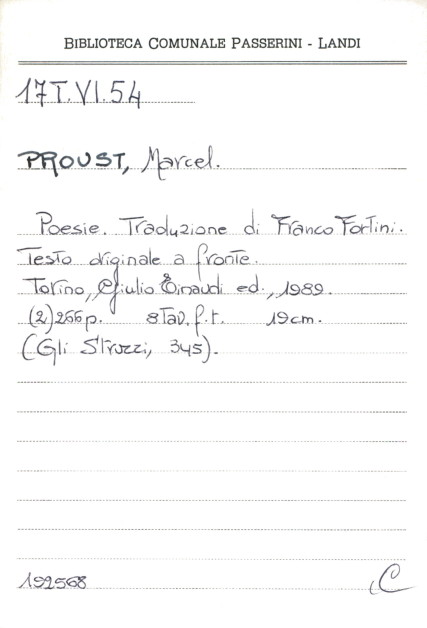 BIBLIOTECA COMUNALE PASSERINI - LANDI
17T.VI.54
PROUST, Marcel.
Poesie. Traduzione di Franco Fortini.
Testo originale a fronte.
Torino, Giulio Einaudi ed., 1989.
(2)266p. 8Tav.f.t. 19cm.
(Gli Struzzi, 345).
192568
C